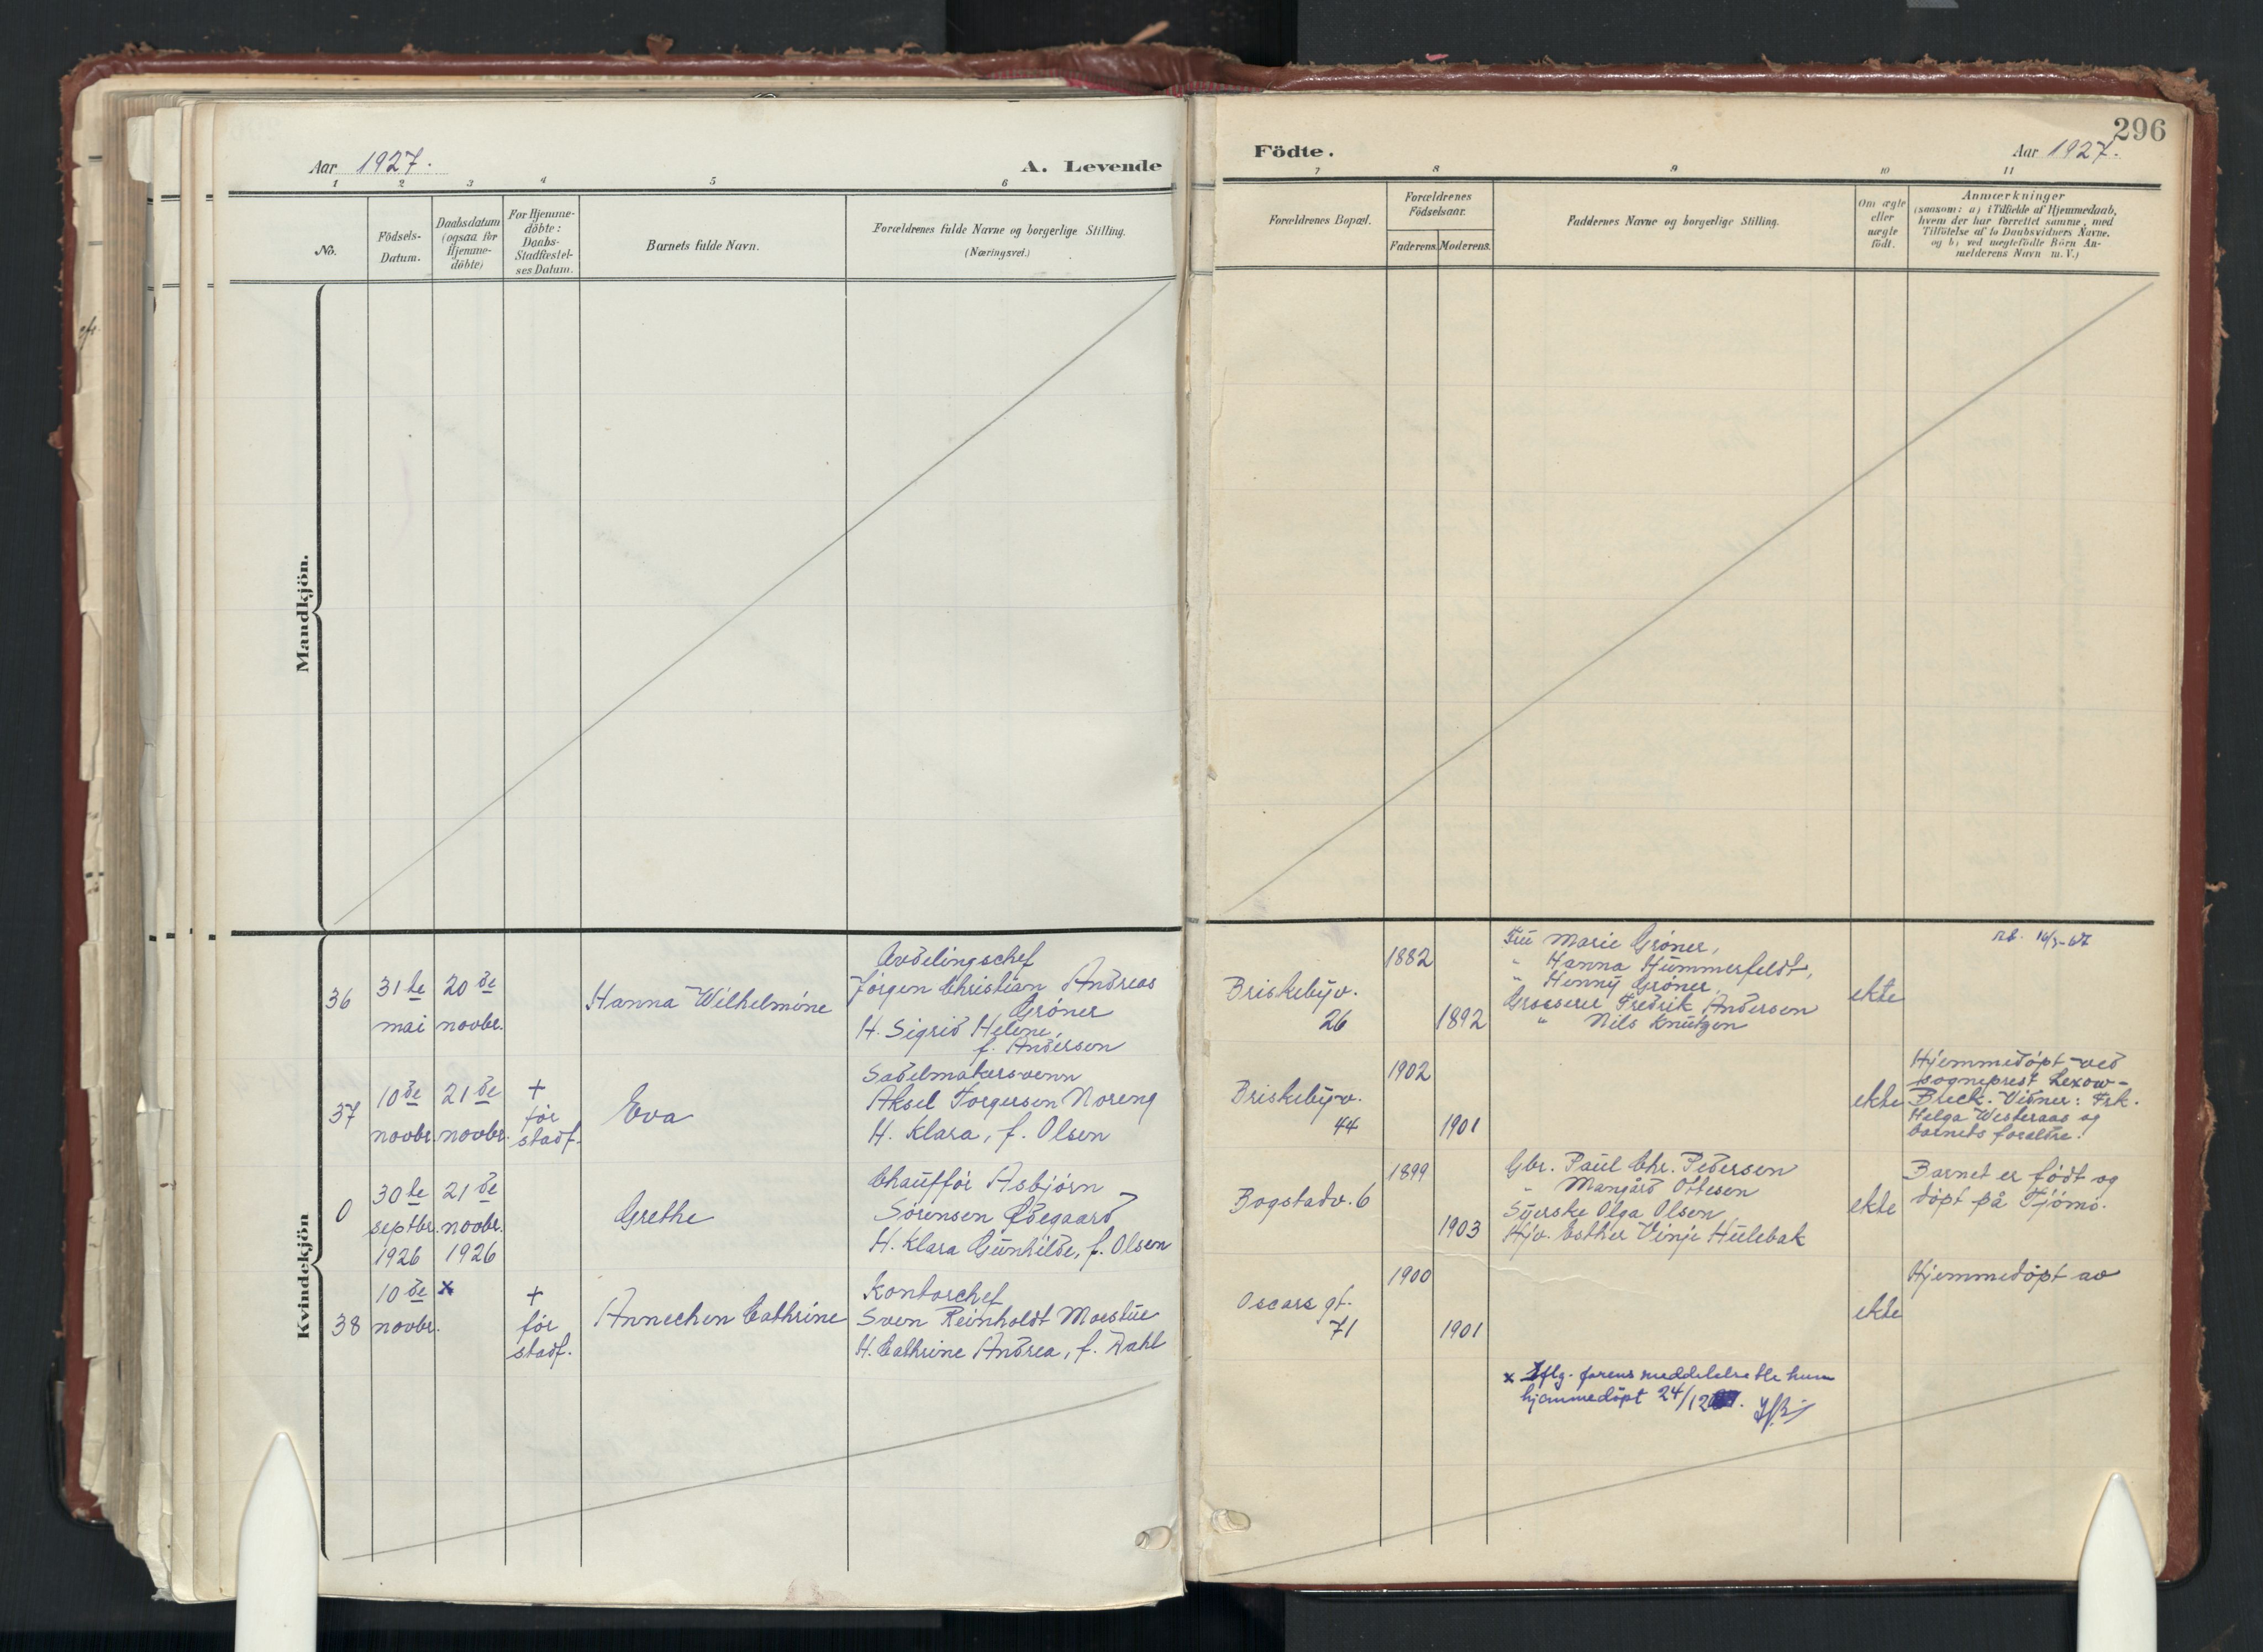 296
Aar 1927.
A. Levende
Födte.
Aar 1927.
1 2 3 4 5 6 7 8 9 10 11
No.
Födsels-
Datum.
Daabsdatum
(ogsaa for
Hjemme-
döbte)
For Hjemme-
döbte:
Daabs-
Stadfæstel-
ses Datum.
Barnets fulde Navn.
Forældrenes fulde Navne og borgerlige Stilling.
(Næringsvei.)
Forældrenes Bopæl.
Forældrenes
Födselsaar.
Faderens. Moderens.
Faddernes Navne og borgerlige Stilling.
Om ægte
eller
uægte
födt.
Anmærkninger
(saasom: a) i Tilfælde af Hjemmedaab,
hvem der har forrettet samme, med
Tilföielse af to Daabsvidners Navne,
og b) ved uægtefödte Börn An-
melderens Navn m. V.)
Mandkjön.
Kvindekjön
36
31te
mai
20de
novbr.
Hanna Wilhelmine
Avdelingschef
Jörgen Christian Andreas
Gröner
H. Sigrid Helene,
f. Andersen
Briskebyv.
26
1882
1892
Fru Marie Gröner,
" Hanna Hummerfeldt,
" Henny Gröner,
Grosserer Fredrik Andersen
" Nils Knutzen
ekte
37
10de
novbr.
21de
novbr.
+
før
stadf.
Eva
Sadelmakersvenn
Aksel Torgersen Noreng
H. Klara, f. Olsen
Briskebyv.
44
1902
1901
ekte
Hjemmedöpt ved
sogneprest Lexow-
Bleck. Vidner: Frk.
Helga Westeraas og
barnets foreldre.
0
30te
septbr.
1926
21de
novbr.
1926
Grethe
Chauffør Asbjörn
Sörensen Ødegaard
H. Klara Gunhilde, f. Olsen
Bogstadv. 6
1899
1903
Gbr. Paul Chr. Pedersen
" Mangård Ottesen
Syerske Olga Olsen
Hjv. Esther Vinje Hulebak
ekte
Barnet er född og
döpt på Tjömö.
38
10de
novbr.
x
+
før
stadf.
Annechen Cathrine
Kontorchef
Sven Reinholdt Moestue
H. Cathrine Andrea, f. Dahl
Oscars gt.
71
1900
1901
ekte
Hjemmedöpt av
x Iflg. farens meddelelse ble hun
hjemmedöpt 24/12